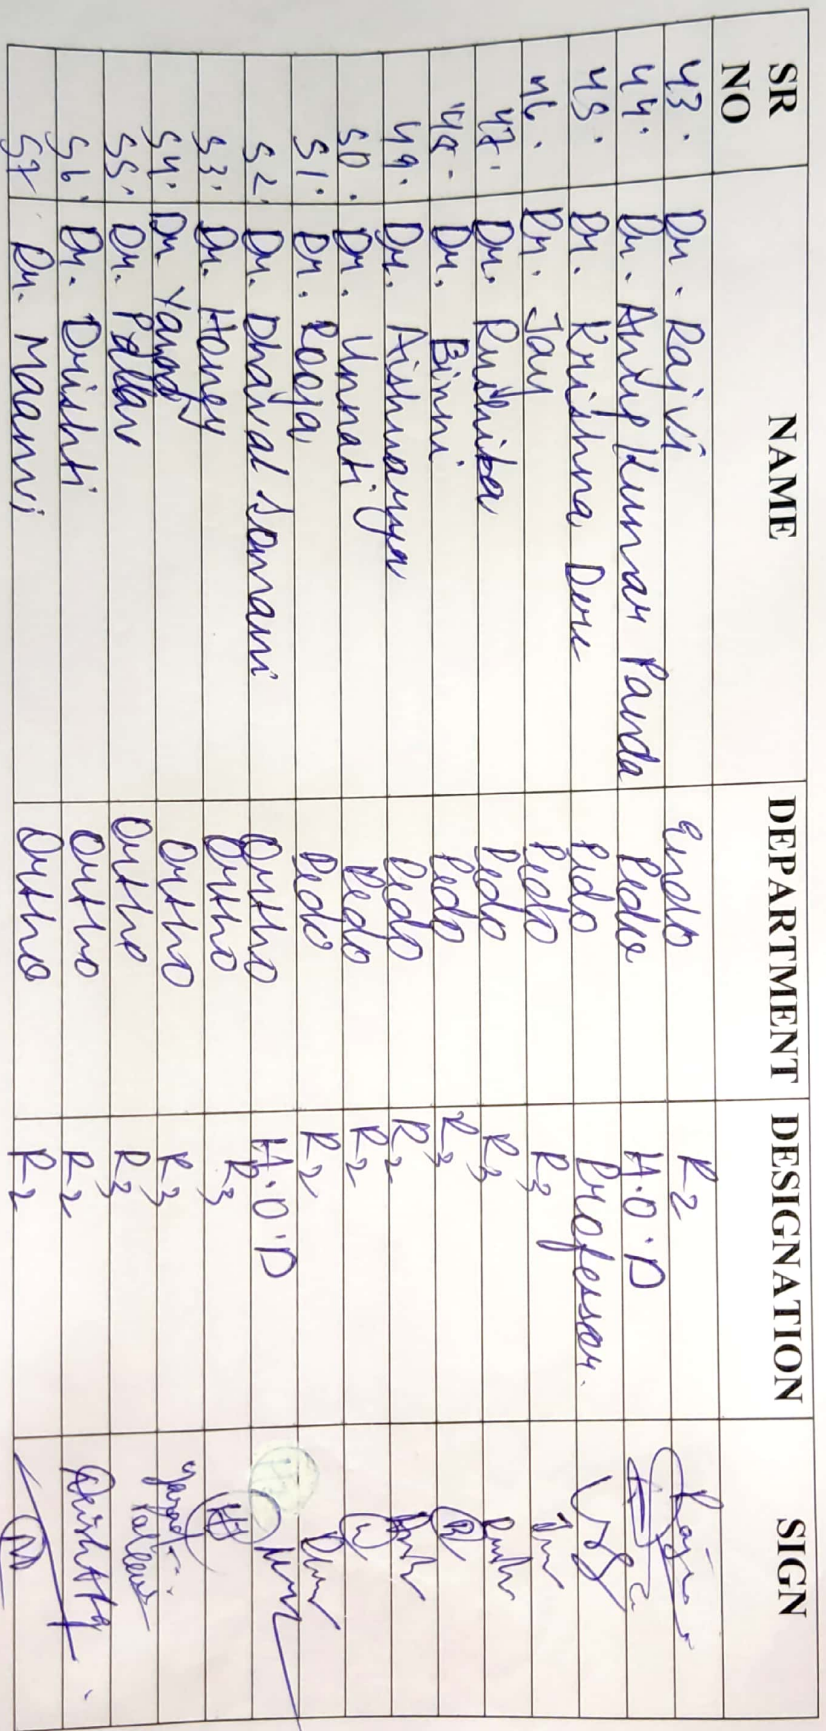 SR NO NAME DEPARTMENT DESIGNATION SIGN
43. Dr. Rajvi Endo R2
44. Dr. Anup Kumar Panda Pedo H.O.D
45. Dr. Krishna Dere Pedo Professor.
46. Dr. Jay Pedo R3 Jay
47. Dr. Rushika Pedo R3 Rush
48. Dr. Binni Pedo R3
49. Dr. Aishwarya Pedo R2
50. Dr. Unnati Pedo R2
51. Dr. Pooja Pedo R2
52. Dr. Dhaval Somani Ortho H.O.D
53. Dr. Honey Ortho R3 H
54. Dr. Ortho R3
55. Dr. Pallav Ortho R3 Pallav
56. Dr. Drishti Ortho R2 Drishti
57. Dr. Maanvi Ortho R2 M